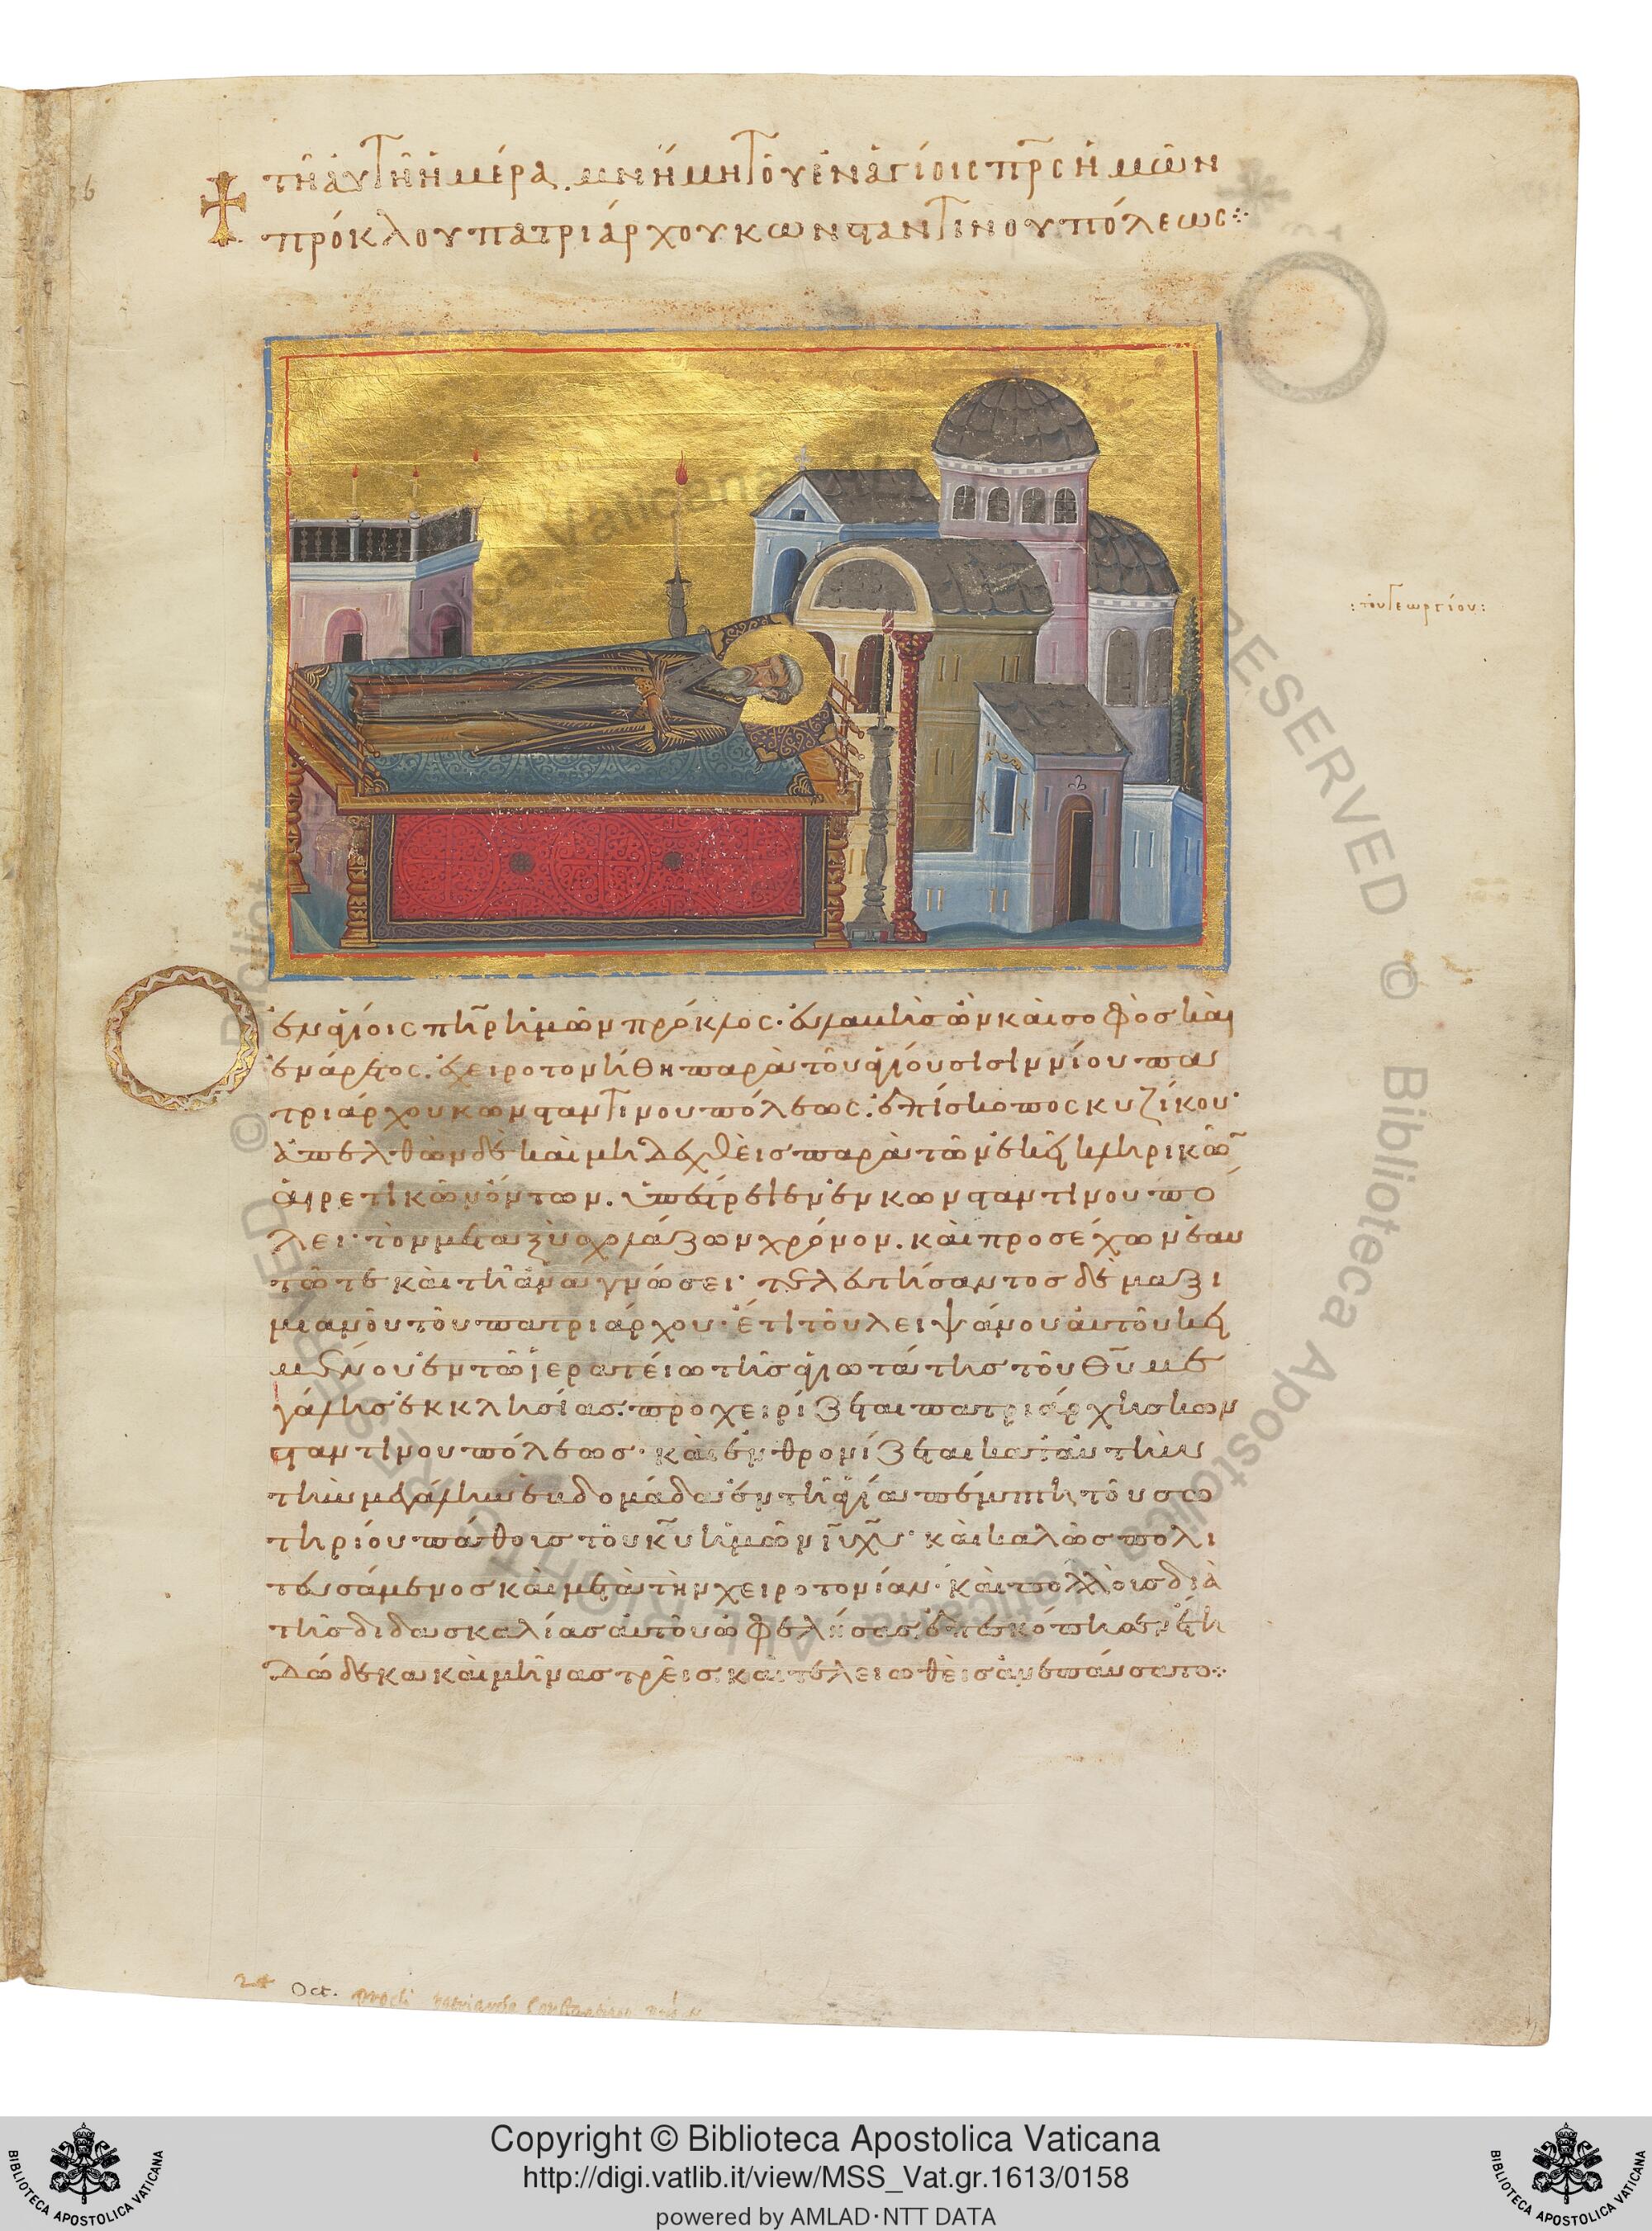 τῆ αὐτῆ ἡμέρα. μνήμη τοῦ ἐν ἁγίοις πρ̅ς ἡμῶν
πρόκλου πατριάρχου κωνσταντινουπόλεως
:τοῦ Γεωργίου:
Ὁ ἐν ἁγίοις πη̅ρ ἡμῶν πρόκλος. ἐλλαμὴς ὢν καὶ σοφὸς καὶ
ἐνάρετος. ἐχειροτονήθη παρὰ τοῦ ἁγίου σισιννίου πα
τριάρχου κωνσταντινουπόλεως. ἐπίσκοπος κυζίκου.
ἀπελθὼν δὲ καὶ μὴ δεχθεὶς παρὰ τῶν ἐκεῖ κληρικῶ̅
αἱρετικῶν ὄντων. ὑπέστρεψεν ἐν κωνσταντινουπό
λει. τὸν μεταξὺ σχολάζων χρόνον. καὶ προσέχων ἑαυ
τῶ τε καὶ τῆ ἀναγνώσει. τελευτήσαντος δὲ μαξι
μιανοῦ τοῦ πατριάρχου. ἔτι τοῦ λειψάνου αὐτοῦ κει
μένου ἐν τῶ ἱερατείω τῆς ἁγιωτάτης τοῦ θ̅υ με
γάλης ἐκκλησίας. προχειρίζεται πατριάρχης κων
σταντινουπόλεως. καὶ ἐνθρονίζεται κατ' αὐτὴν
τὴν μεγάλην ἑβδομάδα ἐν τῆ ἁγία πέμπτη τοῦ σω
τηρίου πάθους τοῦ κ̅υ ἡμῶν ι̅υ χ̅υ. καὶ καλῶς πολι
τευσάμενος καὶ μετὰ τὴν χειροτονίαν. καὶ πολλοὺς διὰ
τῆς διδασκαλίας αὐτοῦ ὠφελήσας. ἐπεσκόπησεν ἔτη
δώδεκα καὶ μῆνας τρεῖς. καὶ τελειωθεὶς ἀνεπαύσατο
24 Oct. Procli patriarchae Constantinop.
Copyright © Biblioteca Apostolica Vaticana
http://digi.vatlib.it/view/MSS_Vat.gr.1613/0158
powered by AMLAD·NTT DATA
BIBLIOTECA APOSTOLICA VATICANA
BIBLIOTECA APOSTOLICA VATICANA
© Biblioteca Apostolica Vaticana ALL RIGHTS RESERVED